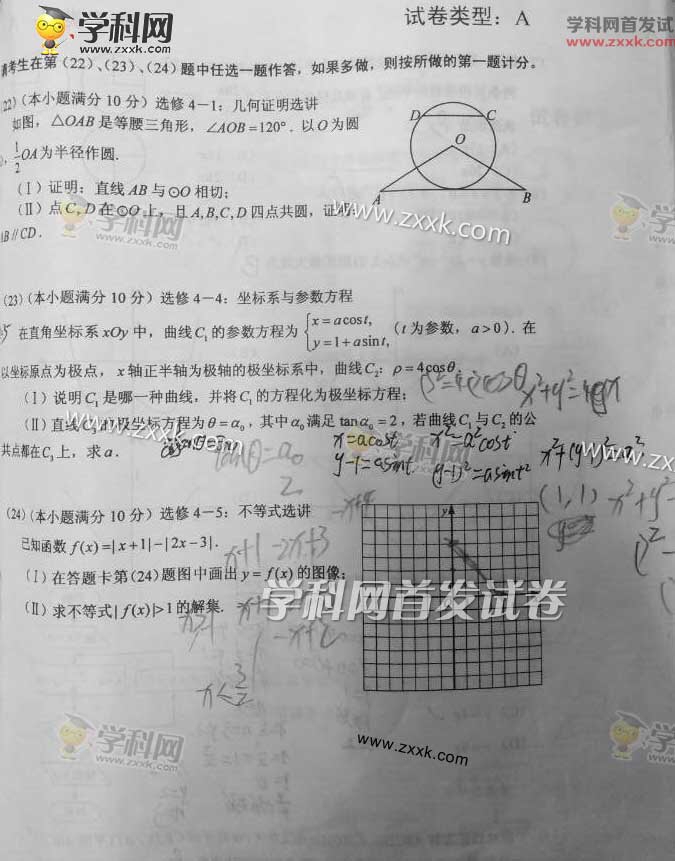 学科网
www.zxxk.com
试卷类型：A
学科网首发试
www.zxxk.com
请考生在第（22）、（23）、（24）题中任选一题作答，如果多做，则按所做的第一题计分。
（22）（本小题满分 10 分）选修 4－1：几何证明选讲
如图，△OAB 是等腰三角形，∠AOB＝120°．以 O 为圆
心，1/2 OA 为半径作圆.
（Ⅰ）证明：直线 AB 与⊙O 相切；
（Ⅱ）点 C, D 在⊙O 上，且 A,B,C,D 四点共圆，证明：
AB // CD．
D C
O
A B
学科网
www.zxxk.com
www.zxxk.com
（23）（本小题满分 10 分）选修 4－4：坐标系与参数方程
在直角坐标系 xOy 中，曲线 C₁ 的参数方程为 { x＝a cos t, y＝1＋a sin t, （t 为参数，a＞0）．在
以坐标原点为极点，x 轴正半轴为极轴的极坐标系中，曲线 C₂：ρ＝4cosθ.
（Ⅰ）说明 C₁ 是哪一种曲线，并将 C₁ 的方程化为极坐标方程；
（Ⅱ）直线 C₃ 的极坐标方程为 θ＝α₀，其中 α₀ 满足 tanα₀＝2，若曲线 C₁ 与 C₂ 的公
共点都在 C₃ 上，求 a．
x=acost
y-1=asint
x²=a²cost²
(y-1)²=asint²
x²+(y-1)²=a²
tanθ=a₀
2
(1,1)
学科网
www.zxxk.com
www.zxxk.com
（24）（本小题满分 10 分）选修 4－5：不等式选讲
已知函数 f(x)＝| x＋1|－|2x－3|.
（Ⅰ）在答题卡第（24）题图中画出 y＝f(x) 的图像；
（Ⅱ）求不等式 | f(x)|＞1 的解集.
-x+4
x+1-2x+3
x<3/2
y
学科网首发试卷
学科网
www.zxxk.com
www.zxxk.com
学科网
www.zxxk.com